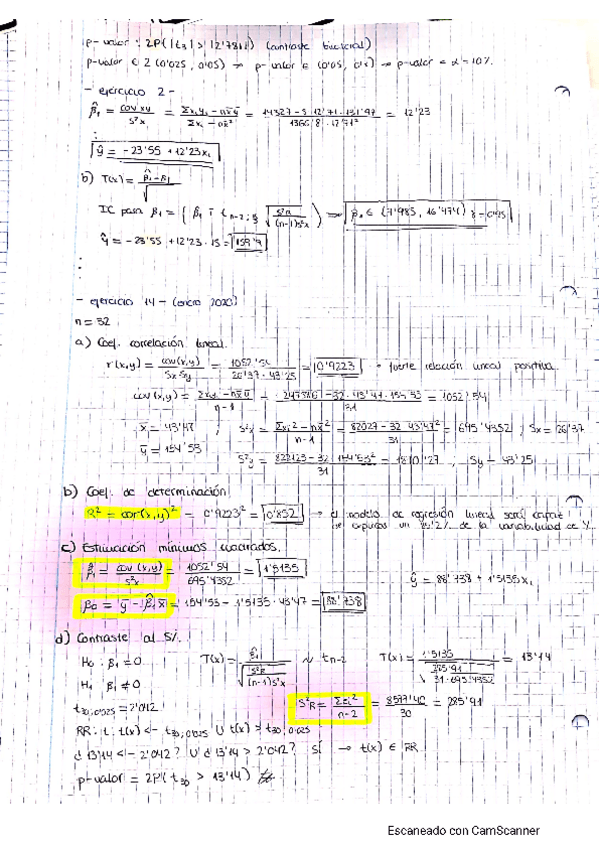 p-valor: 2P(|t₃| > |2'7811|) (contraste bilateral)
p-valor ∈ 2 (0'025, 0'05) → p-valor ∈ (0'05, 0'1) → p-valor < α = 10%.
- ejercicio 2 -
β̂₁ = cov xy / s²x = Σxᵢyᵢ - nx̄ȳ / Σxᵢ - nx̄² = = 12'23
ŷ = -23'55 + 12'23xᵢ
b) T(x) = β̂₁ - β₁ / √
IC para β₁ =
ŷ = -23'55 + 12'23 · 15 =
- ejercicio 14 - (enero 2020)
n = 32
a) Coef. correlación lineal.
r(x,y) = cov(x,y) / Sx Sy = 1052'54 / 26'37 · 43'25 = 0'9223 → fuerte relación lineal positiva.
cov(x,y) = Σxᵢyᵢ - nx̄ȳ / n-1 = - 32 · 43'47 · 154'53 / 31 = 1052'54
x̄ = 43'47 ; S²x = Σxᵢ² - nx̄² / n-1 = 82027 - 32 · 43'47² / 31 = 695'4352 ; Sx = 26'37
ȳ = 154'53 S²y = - 32 · 154'53² / 31 = 1870'27 ; Sy = 43'25
b) Coef. de determinación
R² = cor(x,y)² = 0'9223² = 0'852 → el modelo de regresión lineal será capaz
de explicar un 85'2% de la variabilidad de Y.
c) Estimación mínimos cuadrados.
β̂₁ = cov(x,y) / s²x = 1052'54 / 695'4352 = 1'5135 ŷ = 88'738 + 1'5135xᵢ
β₀ = ȳ - β̂₁x̄ = 154'53 - 1'5135 · 43'47 = 88'738
d) Contraste al 5%.
H₀: β₁ = 0 T(x) = β̂₁ / √(s²R / (n-1)s²x) ~ tn-2 T(x) = 1'5135 / √(285'91 / 31·695'4352) = 13'14
H₁: β₁ ≠ 0
t₃₀,₀'₀₂₅ = 2'042 S²R = Σeᵢ² / n-2 = 8577'40 / 30 = 285'91
RR: t: t(x) < - t₃₀,₀'₀₂₅ ∪ t(x) > t₃₀,₀'₀₂₅
¿13'14 < -2'042? ∪ ¿13'14 > 2'042? SÍ → t(x) ∈ RR
p-valor = 2P(t₃₀ > 13'14)
Escaneado con CamScanner